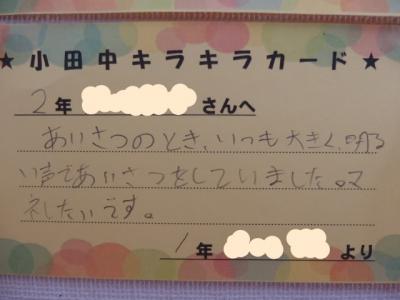 ★小田中キラキラカード★
2年 さんへ
あいさつのとき、いつも大きく、明る
い声であいさつをしていました。マ
ネしたいです。
1年 より